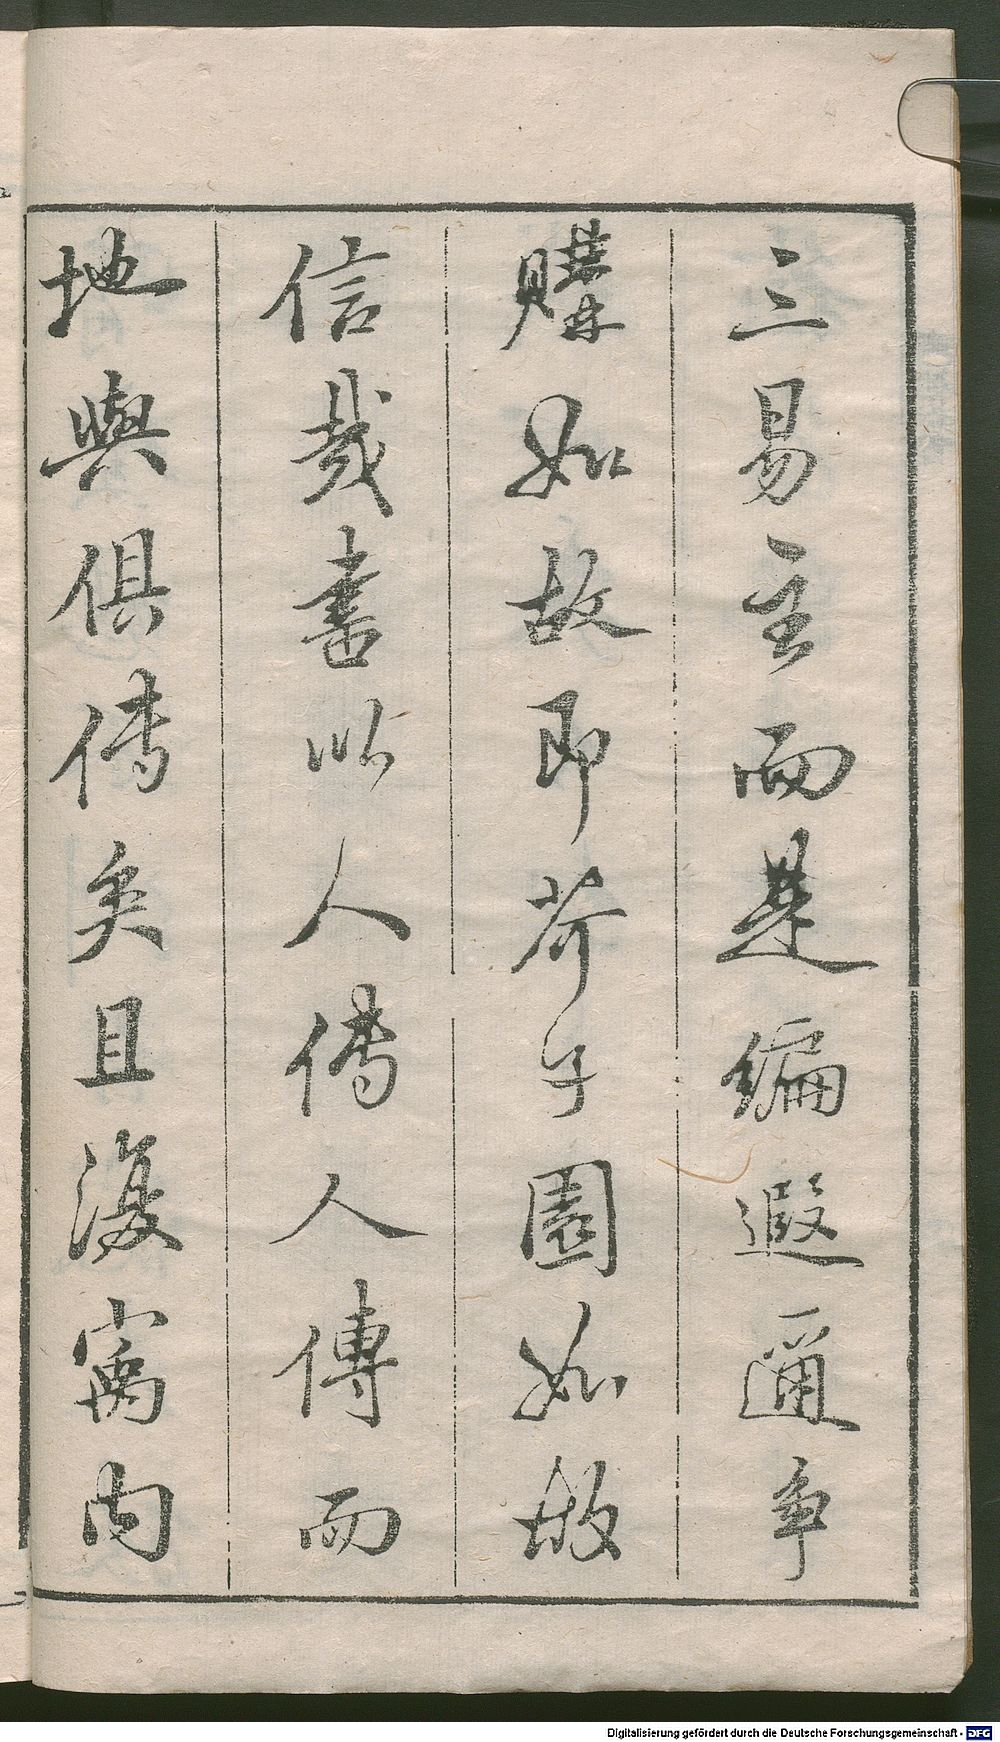 三易主而是編遐邇爭
購如故即芥子園如故
信哉書以人傳人傳而
地與俱傳矣且復寓內
Digitalisierung gefördert durch die Deutsche Forschungsgemeinschaft - DFG